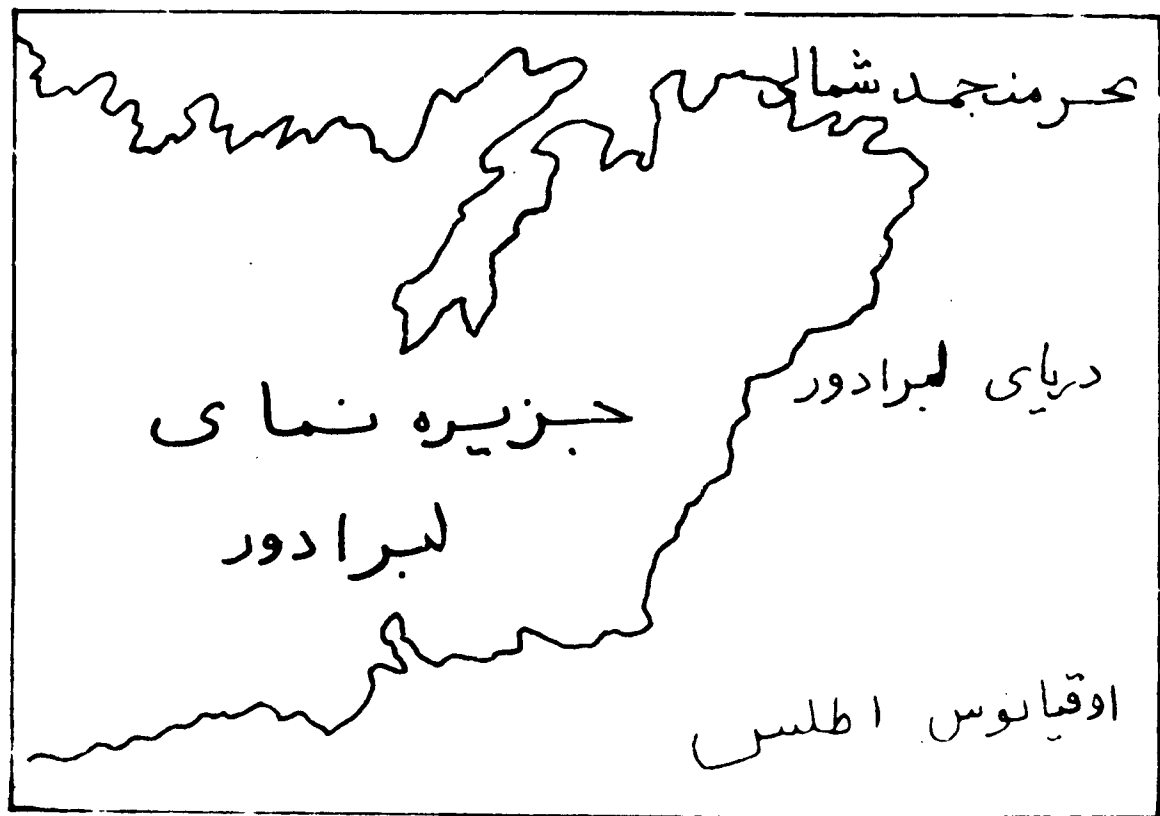 بحر منجمد شمالی
دریای لبرادور
جزیره نمای
لبرادور
اوقیانوس اطلس